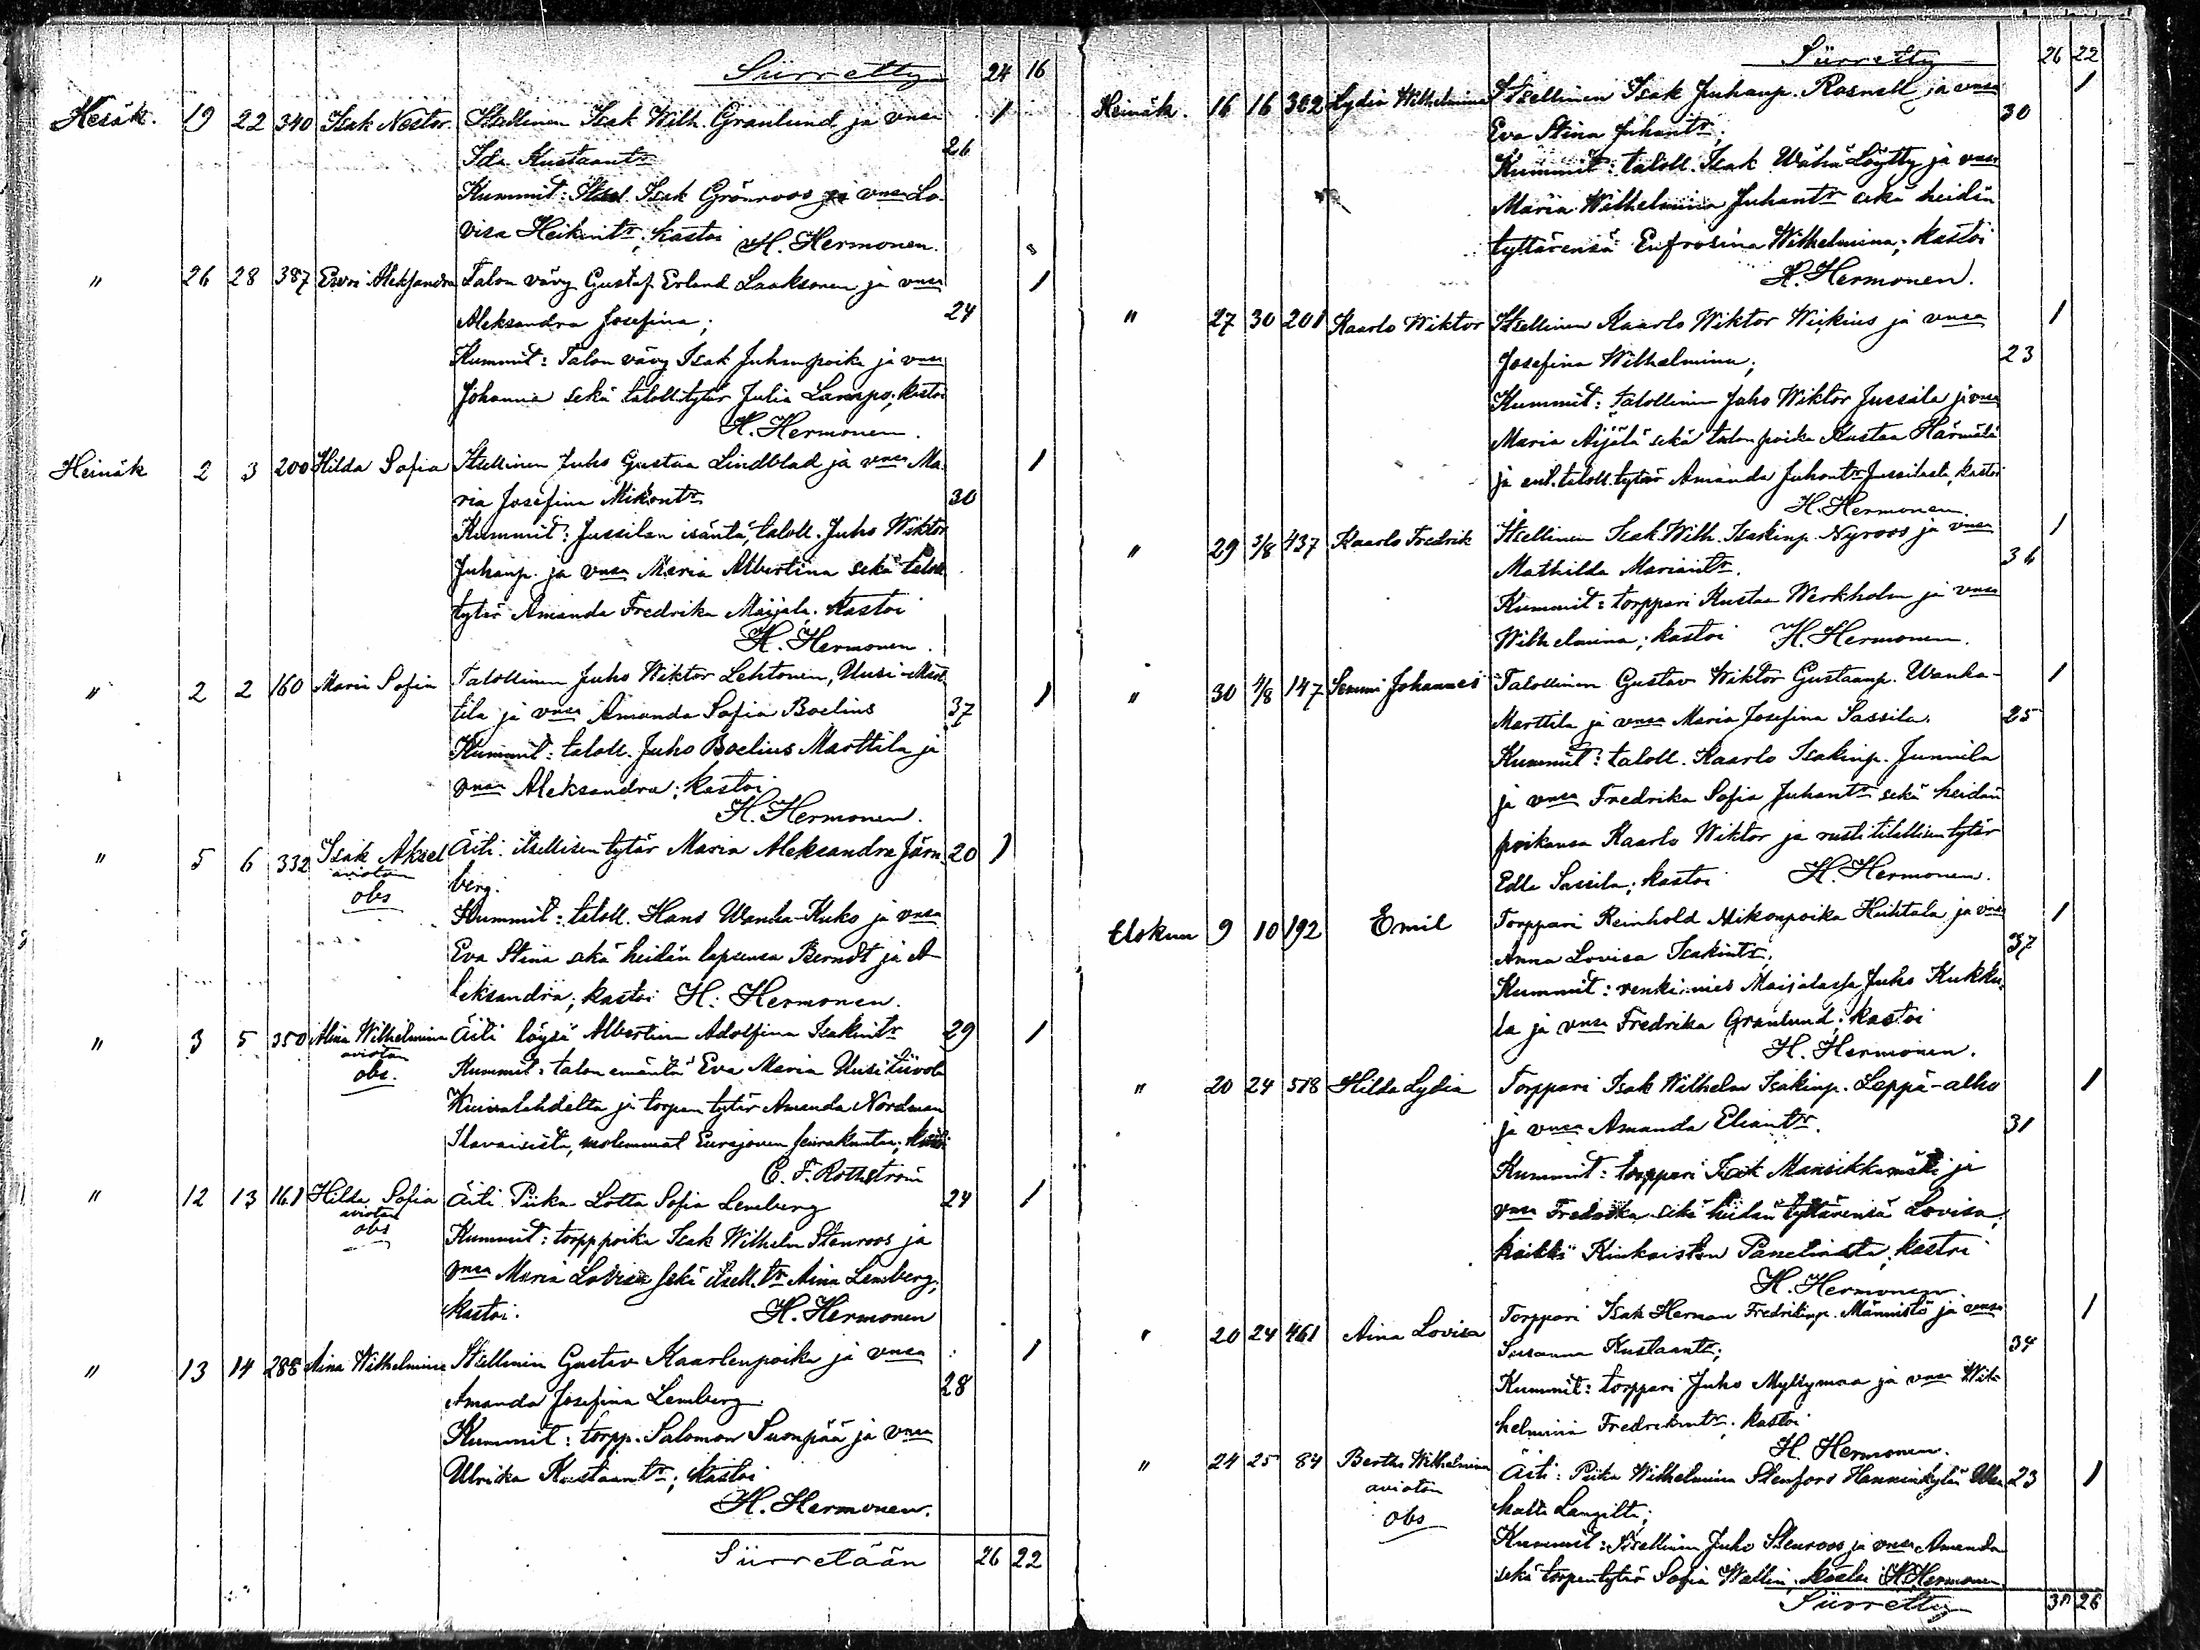 Siirretty 24 16
Kesäk. 19 22 340 Isak Nestor. Itsellinen Isak Wilh. Granlund ja vmsa 1
Ida Kustaantr 26
Kummit: Itsel. Isak Grönroos ja vmsa Lo-
visa Heikintr; kastoi H. Hermonen.
" 26 28 387 Eevri Aleksandra Talon vävy Gustaf Erland Laaksonen ja vmsa 1
Aleksandra Josefina; 24
Kummit: Talon vävy Isak Juhanpoika ja vmsa
Johanna sekä taloll. tytär Julia Lampo; kastoi
H. Hermonen.
Heinäk 2 3 200 Hilda Sofia Itsellinen Juho Gustaa Lindblad ja vmsa Ma- 1
ria Josefina Mikontr 30
Kummit: Jussilan isäntä, taloll. Juho Wiktor
Juhanp. ja vmsa Maria Albertina sekä taloll.
tytär Amanda Fredrika Maijala. kastoi
H. Hermonen.
" 2 2 160 Maria Sofia Talollinen Juho Wiktor Lehtonen, Uusi-Mart-
tila ja vmsa Amanda Sofia Boelius 37 1
Kummit: taloll. Juho Boelius Marttila ja
vmsa Aleksandra; kastoi
H. Hermonen.
" 5 6 332 Isak Aksel Äiti: itsellisen tytär Maria Aleksandra Järn- 20 1
avioton berg.
obs Kummit: taloll. Hans Wanha-Kuko ja vmsa
Eva Stina sekä heidän lapsensa Berndt ja A-
leksandra; kastoi H. Hermonen.
" 3 5 350 Alina Wilhelmina Äiti löysä Albertina Adolfina Isakintr 29 1
avioton Kummit: talon emäntä Eva Maria Uusitüvola
obs. Kuivalahdelta ja torpan tytär Amanda Nordman
Ilavaisista, molemmat Eurajoen seurakuntaa; kastoi
C. F. Rothström
" 12 13 161 Hilda Sofia Äiti Piika Lotta Sofia Lemberg 24 1
avioton Kummit: torpp poika Isak Wilhelm Stenroos ja
obs vmsa Maria Lovisa sekä itsell. tr Aina Lemberg;
kastoi. H. Hermonen
" 13 14 288 Aina Wilhelmina Itsellinen Gustav Kaarlenpoika ja vmsa 1
Amanda Josefina Lemberg. 28
Kummit: torpp. Salomon Suonpää ja vmsa
Ulrika Kustaantr; kastoi
H. Hermonen.
Siirretään 26 22
Siirretty 26 22
Heinäk. 16 16 302 Lydia Wilhelmina Itsellinen Isak Juhanp. Rosnell ja vmsa 1
Eva Stina Juhantr; 30
Kummit: taloll. Isak Wähä Löytty ja vmsa
Maria Wilhelmina Juhantr sekä heidän
tyttärensä Eufrosina Wilhelmina; kastoi
H. Hermonen.
" 27 30 201 Kaarlo Wiktor Itsellinen Kaarlo Wiktor Wickius ja vmsa 1
Josefina Wilhelmina; 23
Kummit: talollinen Juho Wiktor Jussila ja vmsa
Maria Äijälä sekä talon poika Kustaa Härmälä
ja ent. taloll. tytär Amanda Juhontr Jussilasta, kastoi
H. Hermonen.
" 29 3/8 437 Kaarlo Fredrik Itsellinen Isak Wilh. Isakinp. Nyroos ja vmsa 1
Mathilda Mariantr. 36
Kummit: torppari Kustaa Werkholm ja vmsa
Wilhelmina; kastoi H. Hermonen.
" 30 4/8 147 Semmi Johannes Talollinen Gustav Wiktor Gustaanp. Wanha- 1
Marttila ja vmsa Maria Josefina Sassila. 25
Kummit: taloll. Kaarlo Isakinp. Junnila
ja vmsa Fredrika Sofia Juhantr sekä heidän
poikansa Kaarlo Wiktor ja rustitilallisen tytär
Edla Sassila; kastoi H. Hermonen.
Elokuu 9 10 192 Emil Torppari Reinhold Mikonpoika Huhtala ja vmsa 1
Anna Lovisa Isakintr; 37
Kummit: renkimies Maijalassa Juho Kukku-
la ja vmsa Fredrika Granlund; kastoi
H. Hermonen.
" 20 24 518 Hilda Lydia Torppari Isak Wilhelm Isakinp. Leppä-alho 1
ja vmsa Amanda Eliantr. 31
Kummit: torppari Isak Mansikkamäki ja
vmsa Fredrika sekä heidän tyttärensä Lovisa,
kaikki Kiukaisten Paneliasta; kastoi
H. Hermonen.
" 20 24 461 Aina Lovisa Torppari Isak Herman Fredrikinp. Männistö ja vmsa 1
Susanna Kustaantr; 34
Kummit: torppari Juho Myllymaa ja vmsa Wil-
helmina Fredrikintr; kastoi
H. Hermonen.
" 24 25 84 Bertha Wilhelmina Äiti: Piika Wilhelmina Stenfors Hanninkylän 23 1
avioton
obs Kummit: Itsellinen Juho Stenroos ja vmsa Amanda
sekä torpantytär Sofia Wallin. kastoi H. Hermonen
Siirretty 30 26